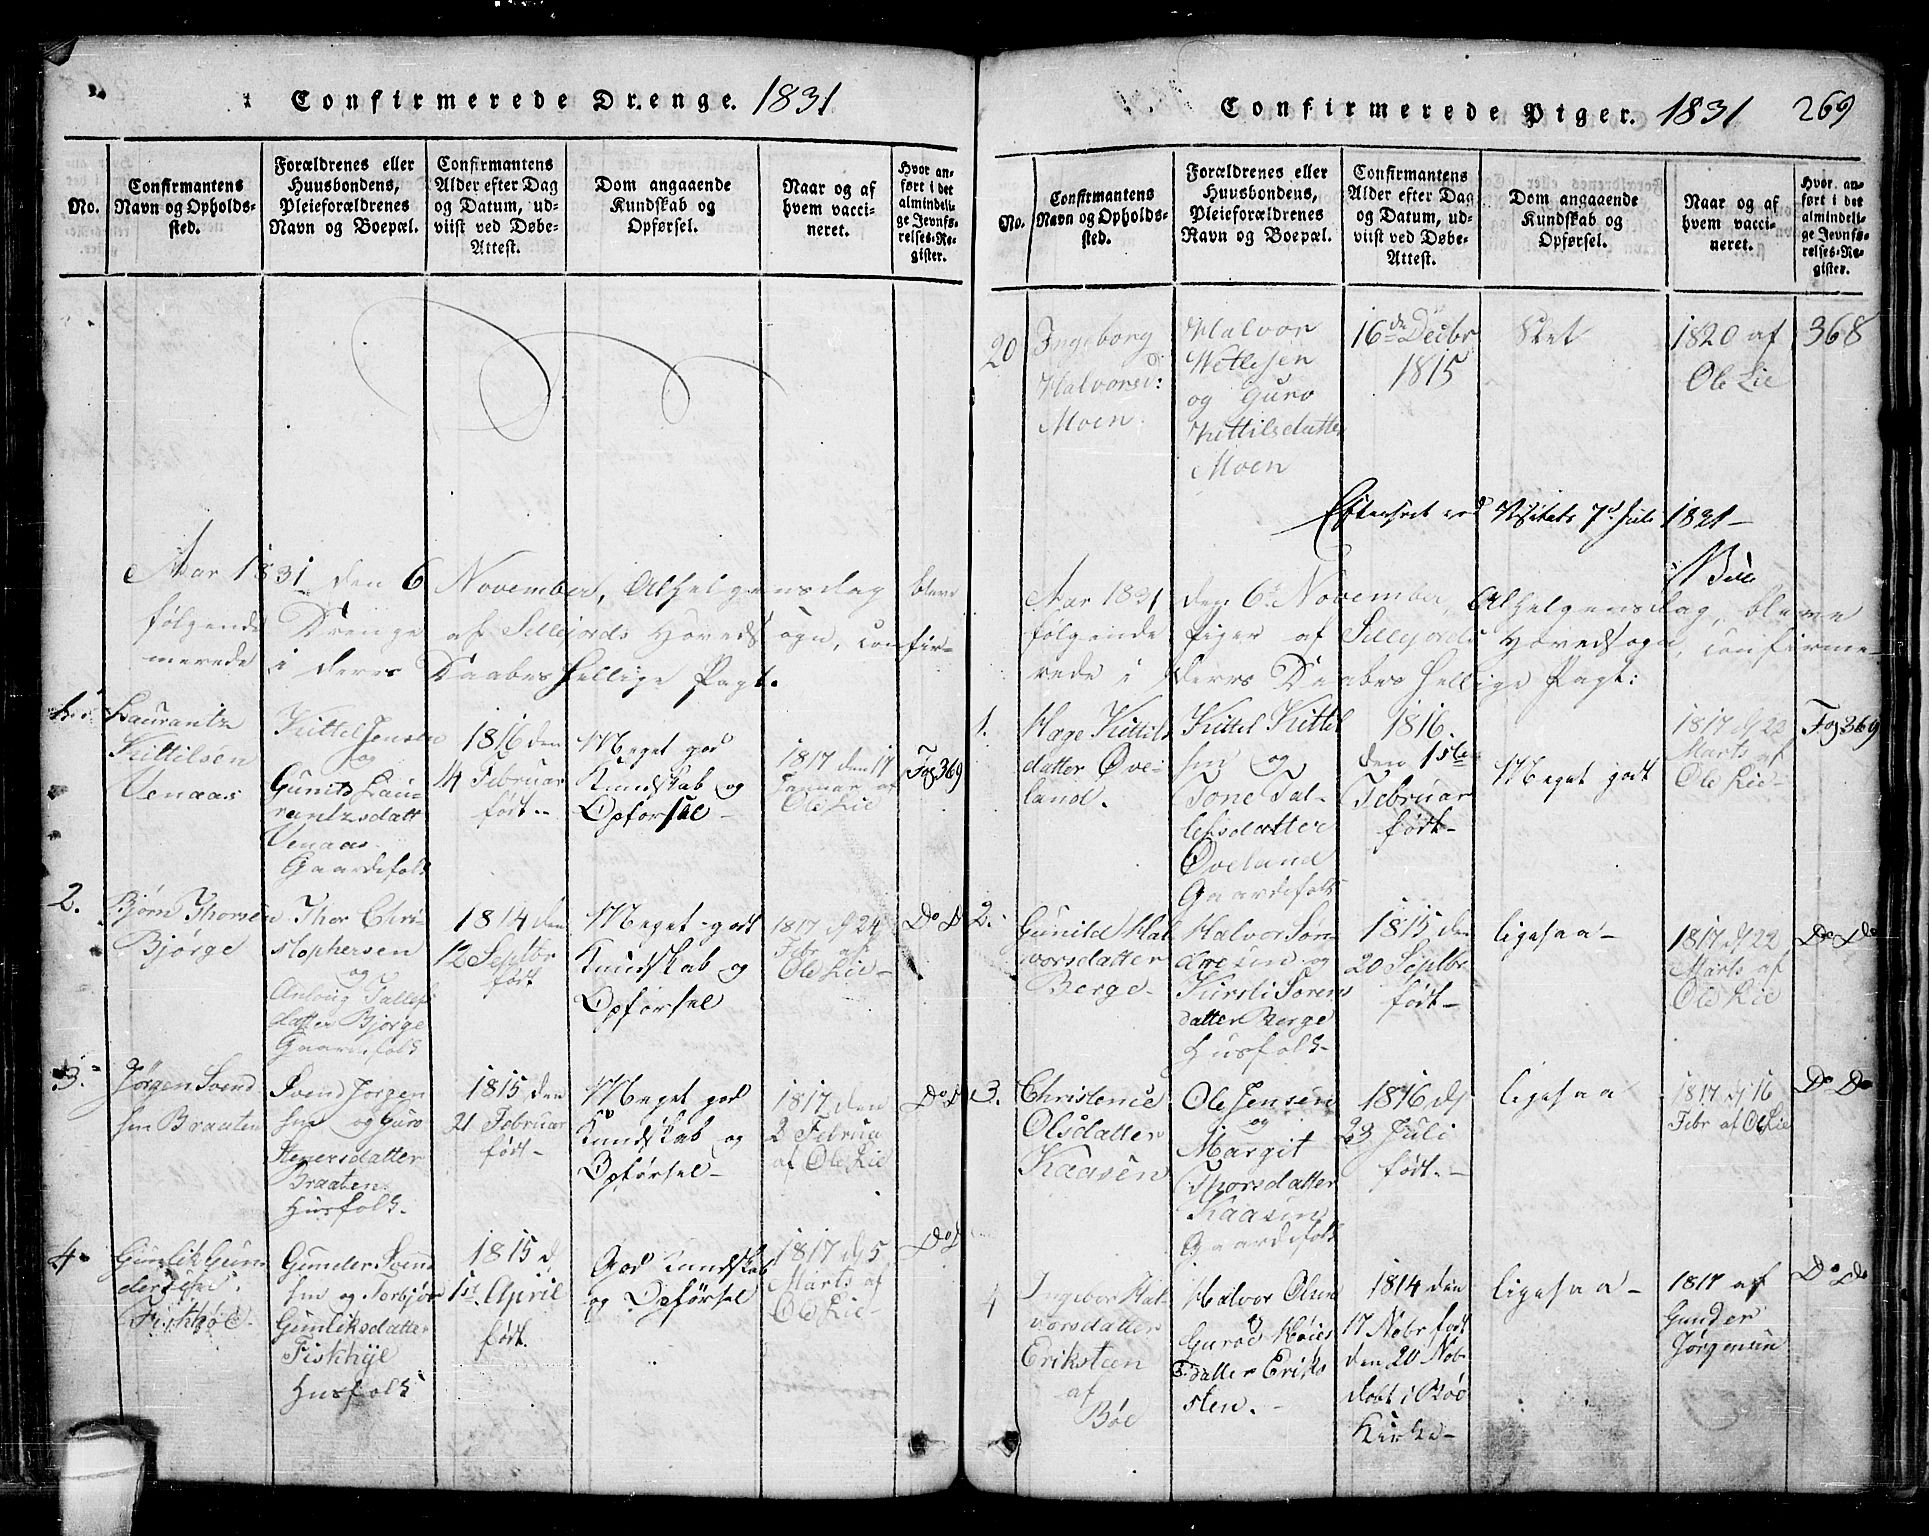 Confirmerede Drenge. 1831
No.
Confirmantens
Navn og Opholds-
sted.
Forældrenes eller
Huusbondens,
Pleieforældrenes
Navn og Boepæl.
Confirmantens
Alder efter Dag
og Datum, ud-
viist ved Døbe-
Attest.
Dom angaaende
Kundskab og
Opførsel.
Naar og af
hvem vacci-
neret.
Hvor an-
ført i det
almindeli-
ge Jevnfø-
relses-Re-
gister.
Aar 1831 den 6 November, Alhelgensdag bleve
følgende Drenge af Sillejords Hovedsogn, confir-
merede i deres Daabes hellige Pagt.
1.
Laurantz
Kittilsen
Venaas
Kittel Jensen
og
Gunild Lau-
rantzsdatt
Venaas
Gaardefolk
1816 den
4 Februar
født -
Meget god
Kundskab og
Opførsel -
1817 den 17
Januar af
Ole Lie
Fog 369
2.
Bjørn Thorsen
Bjørge
Thor Chri-
stophersen
og
Anloug Tallef
datter Bjørge
Gaardefolk
1814 den
12 Septbr
født
Meget godt
Kundskab og
Opførsel
1817 dj 24
Febr af
Ole Lie -
Do D
3.
Jørgen Svend
sen Braaten
Svend Jørgen
sen og Guro
Stenersdatter
Braaten
Husfolk -
1815 den
21 Februar
født -
Meget god
Kundskab og
Opførsel -
1817 den
2 Februa
af Ole Lie
Do D
4.
Gunlik Gun
dersen
Fiskhøe -
Gunder Svend
sen og Torbjør
Gunliksdatter
Fiskhye
Husfolk
1815 d.
1st April
født.
God Kundskab
og Opførsel
1817 dj 5
Marts af
Ole Lie -
Do D
Confirmerede Piger. 1831 269
No.
Confirmantens
Navn og Opholds-
sted.
Forældrenes eller
Huusbondens,
Pleieforældrenes
Navn og Boepæl.
Confirmantens
Alder efter Dag
og Datum, ud-
viist ved Døbe-
Attest.
Dom angaaende
Kundskab og
Opførsel.
Naar og af
hvem vacci-
neret.
Hvor an-
ført i det
almindeli-
ge Jevnfø-
relses-Re-
gister.
20
Ingeborg
Halvorsd:
Moen.
Halvor
Wetlesen
og Guro
Kittilsdatter
Moen
16de Decbr
1815
Slet
1820 af
Ole Lie
368
Efterseet ved Visitats 7d Juli 1831 -
Aar 1831 den 6d November, Alhelgensdag, bleve
følgende Piger af Sillejords Hovedsogn, confirme-
rede i deres Daabes hellige Pagt:
1.
Hage Kittils
datter Øve-
land.
Kittel Kittil
sen og
Tone Tal-
lefsdatter
Øveland
Gaardefolk
1816.
den 1ste
Februar
født -
Meget godt
1817 dj 22
Marts af
Ole Lie -
Fog 369
2.
Gunild Hal
vorsdatter
Berge -
Halvor Søn-
dresen og
Kirsti Søren
datter Berge
Husfolk -
1815 den
20 Septbr
født -
ligesaa -
1817 dj 22
Marts af
Ole Lie
Do Do
3.
Christence
Olsdatter
Kaasen
Ole Jensen
og
Margit
Thorsdatter
Kaasen
Gaardefolk
1816 dj
23 Juli
født. -
ligesaa
1817 dj 16
Febr af Ole Lie
Do Do
4
Ingebor Hal-
vorsdatter
Eriksteen
af
Bøe
Halvor Olsen
og
Guroe Høies
datter Eriks
sten. -
1814 den
17 Nobr født
den 20 Nob
døbt i Bøe
Kirke -
ligesaa -
1817 af
Gunder
Jørgensen
Do Do